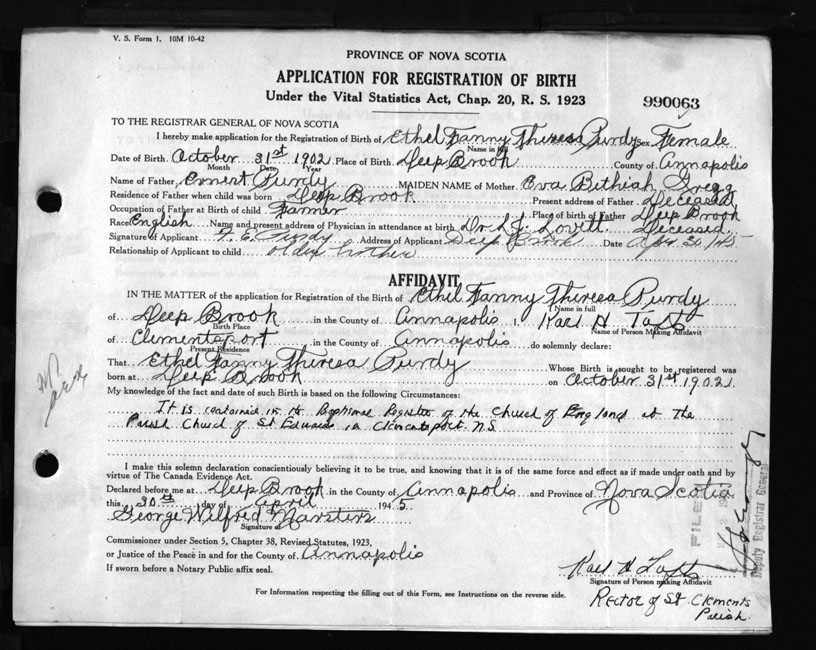 V. S. Form 1. 10M 10-42
PROVINCE OF NOVA SCOTIA
APPLICATION FOR REGISTRATION OF BIRTH
Under the Vital Statistics Act, Chap. 20, R. S. 1923
990063
TO THE REGISTRAR GENERAL OF NOVA SCOTIA
I hereby make application for the Registration of Birth of Ethel Fanny Theresa Purdy Sex Female
Name in full
Date of Birth October 31st 1902 Place of Birth Deep Brook County of Annapolis
Month Date Year
Name of Father Ernest Purdy MAIDEN NAME of Mother Eva Bethiah Gregg
Residence of Father when child was born Deep Brook Present address of Father Deceased
Occupation of Father at Birth of child Farmer Place of birth of Father Deep Brook
Race English Name and present address of Physician in attendance at birth Dr. L. J. Lovett. Deceased.
Signature of Applicant Purdy Address of Applicant Deep Brook Date Apr 30/45
Relationship of Applicant to child older brother
AFFIDAVIT
IN THE MATTER of the application for Registration of the Birth of Ethel Fanny Theresa Purdy
Name in full
of Deep Brook in the County of Annapolis I, Karl H Tafts
Birth Place Name of Person Making Affidavit
of Clementsport in the County of Annapolis do solemnly declare:
Present Residence
That Ethel Fanny Theresa Purdy Whose Birth is sought to be registered was
born at Deep Brook on October 31st 1902.
My knowledge of the fact and date of such Birth is based on the following Circumstances:
It is contained in the Baptismal Register of the Church of England at the
Parish Church of St Edwards in Clementsport N.S.
I make this solemn declaration conscientiously believing it to be true, and knowing that it is of the same force and effect as if made under oath and by
virtue of The Canada Evidence Act.
Declared before me at Deep Brook in the County of Annapolis and Province of Nova Scotia
this 30th day of April 1945.
George Wilfred Marsters
Signature of
Commissioner under Section 5, Chapter 38, Revised Statutes, 1923,
or Justice of the Peace in and for the County of Annapolis
If sworn before a Notary Public affix seal.
Karl H Tafts
Signature of Person making Affidavit
Rector of St. Clements
Parish.
For Information respecting the filling out of this Form, see Instructions on the reverse side.
FILED
Deputy Registrar General